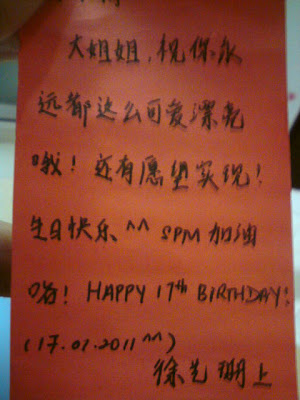 大姐姐,祝你永
远都这么可爱漂亮
哦!还有愿望实现!
生日快乐、^^ SPM 加油
哈! HAPPY 17th BIRTHDAY!
(17.01.2011 ^^)
徐 珊上